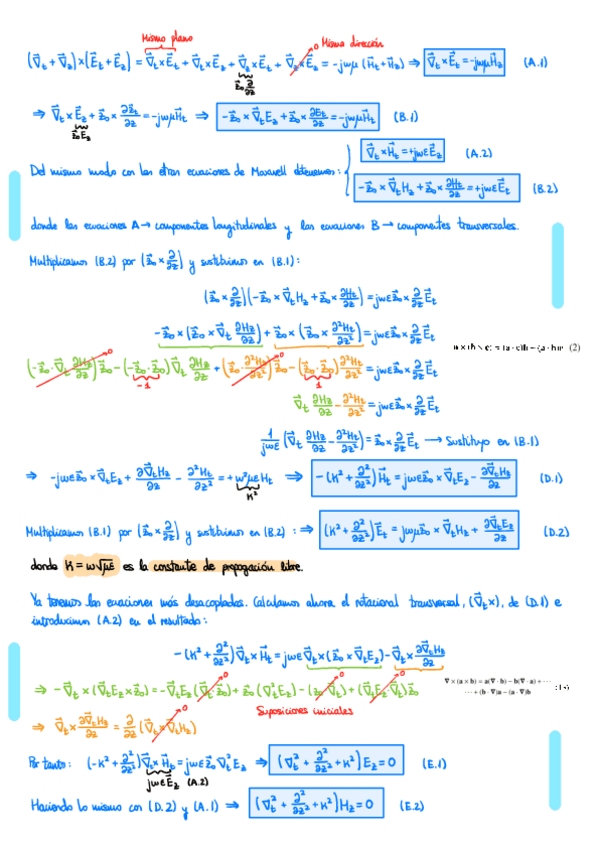 Mismo plano
Misma dirección
(∇⃗t + ∇⃗z)×(E⃗t + E⃗z) = ∇⃗t×E⃗t + ∇⃗t×E⃗z + ∇⃗z×E⃗t + ∇⃗z×E⃗z = -jωμ (H⃗t + H⃗z) ⇒ ∇⃗t×E⃗t = -jωμH⃗z (A.1)
0
z⃗₀ ∂/∂z
⇒ ∇⃗t×E⃗z + z⃗₀× ∂E⃗t/∂z = -jωμH⃗t ⇒ -z⃗₀×∇⃗tEz + z⃗₀× ∂Et/∂z = -jωμH⃗t (B.1)
z⃗₀Ez
∇⃗t×H⃗t = +jωεE⃗z (A.2)
Del mismo modo con las otras ecuaciones de Maxwell obtenemos:
-z⃗₀×∇⃗tHz + z⃗₀× ∂Ht/∂z = +jωεE⃗t (B.2)
donde las ecuaciones A → componentes longitudinales y las ecuaciones B → componentes transversales.
Multiplicamos (B.2) por (z⃗₀× ∂/∂z) y sustituimos en (B.1):
(z⃗₀× ∂/∂z)(-z⃗₀×∇⃗tHz + z⃗₀× ∂H⃗t/∂z) = jωεz⃗₀× ∂/∂z E⃗t
-z⃗₀×(z⃗₀×∇⃗t ∂Hz/∂z) + z⃗₀×(z⃗₀× ∂²Ht/∂z²) = jωεz⃗₀× ∂/∂z E⃗t
(2)
(-z⃗₀·∇⃗t ∂Hz/∂z)z⃗₀ - (-z⃗₀·z⃗₀)∇⃗t ∂Hz/∂z + (z⃗₀· ∂²Ht/∂z²)z⃗₀ - (z⃗₀·z⃗₀) ∂²Ht/∂z² = jωεz⃗₀× ∂/∂z E⃗t
0 -1 0 1
∇⃗t ∂Hz/∂z - ∂²Ht/∂z² = jωεz⃗₀× ∂/∂z E⃗t
1/jωε (∇⃗t ∂Hz/∂z - ∂²Ht/∂z²) = z⃗₀× ∂/∂z E⃗t → Sustituyo en (B.1)
⇒ -jωεz⃗₀×∇⃗tEz + ∂∇⃗tHz/∂z - ∂²Ht/∂z² = +ω²μεHt ⇒ -(K² + ∂²/∂z²)H⃗t = jωεz⃗₀×∇⃗tEz - ∂∇⃗tHz/∂z (D.1)
K²
Multiplicamos (B.1) por (z⃗₀× ∂/∂z) y sustituimos en (B.2): ⇒ (K² + ∂²/∂z²)E⃗t = jωμz⃗₀×∇⃗tHz + ∂∇⃗tEz/∂z (D.2)
donde K = ω√με es la constante de propagación libre.
Ya tenemos las ecuaciones más desacopladas. Calculamos ahora el rotacional transversal, (∇⃗t×), de (D.1) e
introducimos (A.2) en el resultado:
-(K² + ∂²/∂z²)∇⃗t×H⃗t = jωε∇⃗t×(z⃗₀×∇⃗tEz) - ∇⃗t× ∂∇⃗tHz/∂z
∇ × (a × b) = a(∇ · b) − b(∇ · a) + ···
··· + (b · ∇)a − (a · ∇)b
⇒ -∇⃗t×(∇⃗tEz×z⃗₀) = -∇⃗tEz(∇⃗t·z⃗₀) + z⃗₀(∇⃗t²Ez) - (z⃗₀·∇⃗t) + (∇⃗tEz·∇⃗t)z⃗₀
0 0 0
Suposiciones iniciales
⇒ ∇⃗t× ∂∇⃗tHz/∂z = ∂/∂z (∇⃗t×∇⃗tHz)
0
Por tanto: (-K² + ∂²/∂z²)∇⃗t×H⃗t = jωεz⃗₀∇t²Ez ⇒ (∇t² + ∂²/∂z² + K²)Ez = 0 (E.1)
jωεE⃗z (A.2)
Haciendo lo mismo con (D.2) y (A.1) ⇒ (∇t² + ∂²/∂z² + K²)Hz = 0 (E.2)